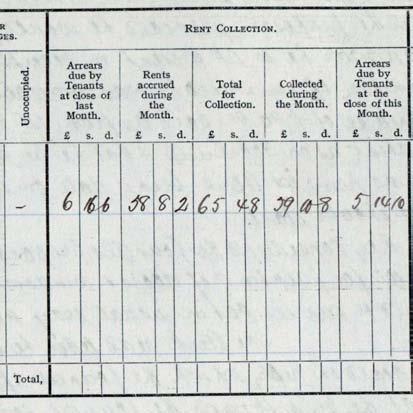 R
GES.
RENT COLLECTION.
Unoccupied.
Arrears
due by
Tenants
at close of
last
Month.
Rents
accrued
during
the
Month.
Total
for
Collection.
Collected
during
the Month.
Arrears
due by
Tenants
at the
close of this
Month.
£ s. d. £ s. d. £ s. d. £ s. d. £ s. d.
- 6 16 6 58 8 2 65 4 8 59 10 8 5 14 0
Total,